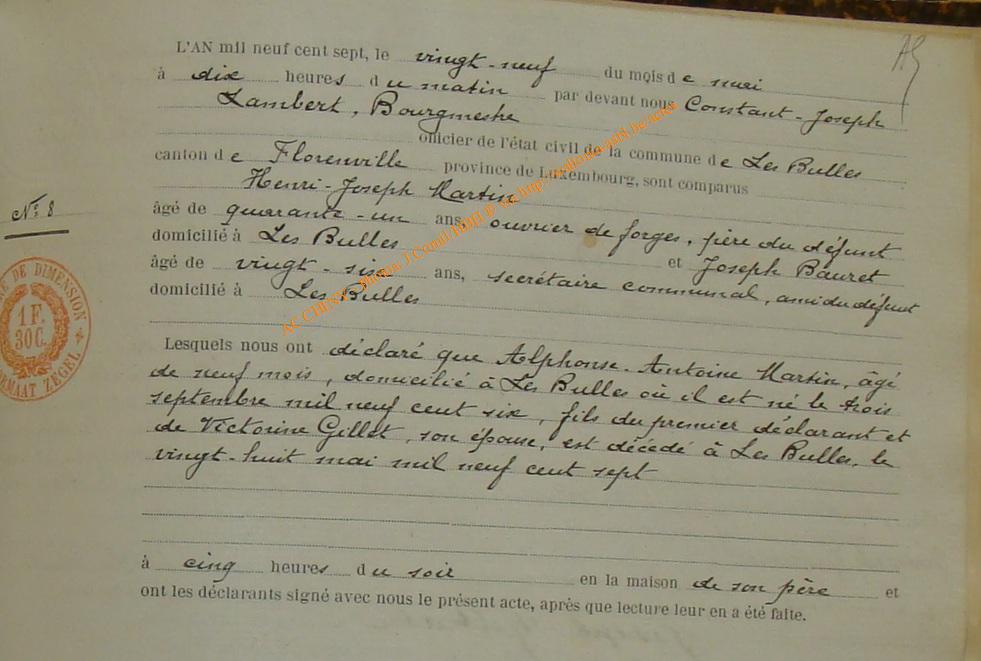 L'AN mil neuf cent sept, le vingt-neuf du mois de mai
à dix heures du matin par devant nous Constant-Joseph
Lambert, Bourgmestre
officier de l'état civil de la commune de Les Bulles
canton de Florenville province de Luxembourg, sont comparus
Henri-Joseph Martin
N° 8
âgé de quarante-un ans, ouvrier de forges, père du défunt
domicilié à Les Bulles et Joseph Bauret
âgé de vingt-six ans, secrétaire communal, ami du défunt
domicilié à Les Bulles
DE DIMENSION
1 F.
30 C.
ZEGEL
Lesquels nous ont déclaré que Alphonse-Antoine Martin, âgé
de neuf mois, domicilié à Les Bulles où il est né le trois
septembre mil neuf cent six, fils du premier déclarant et
de Victorine Gillet, son épouse, est décédé à Les Bulles, le
vingt-huit mai mil neuf cent sept
à cinq heures du soir en la maison de son père et
ont les déclarants signé avec nous le présent acte, après que lecture leur en a été faite.